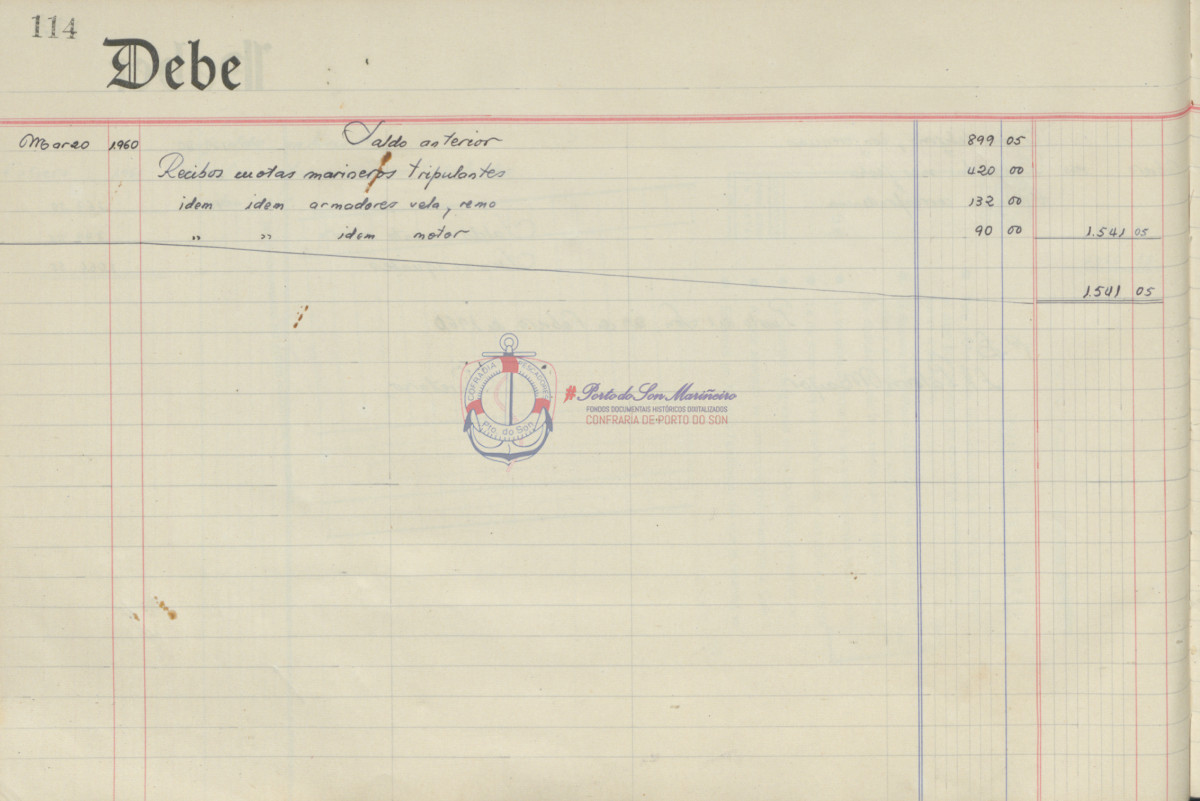 114
Debe
Marzo 1960 Saldo anterior 899 05
Recibos cuotas marineros tripulantes 420 00
idem idem armadores vela, remo 132 00
„ „ idem motor 90 00 1.541 05
1.541 05
COFRADIA PESCADORES
Pto. do Son
#Porto do Son Mariñeiro
FONDOS DOCUMENTAIS HISTÓRICOS DIXITALIZADOS
CONFRARIA DE PORTO DO SON